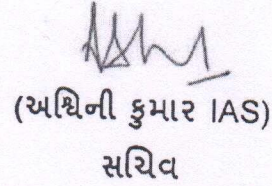 (અશ્વિની કુમાર IAS)
સચિવ